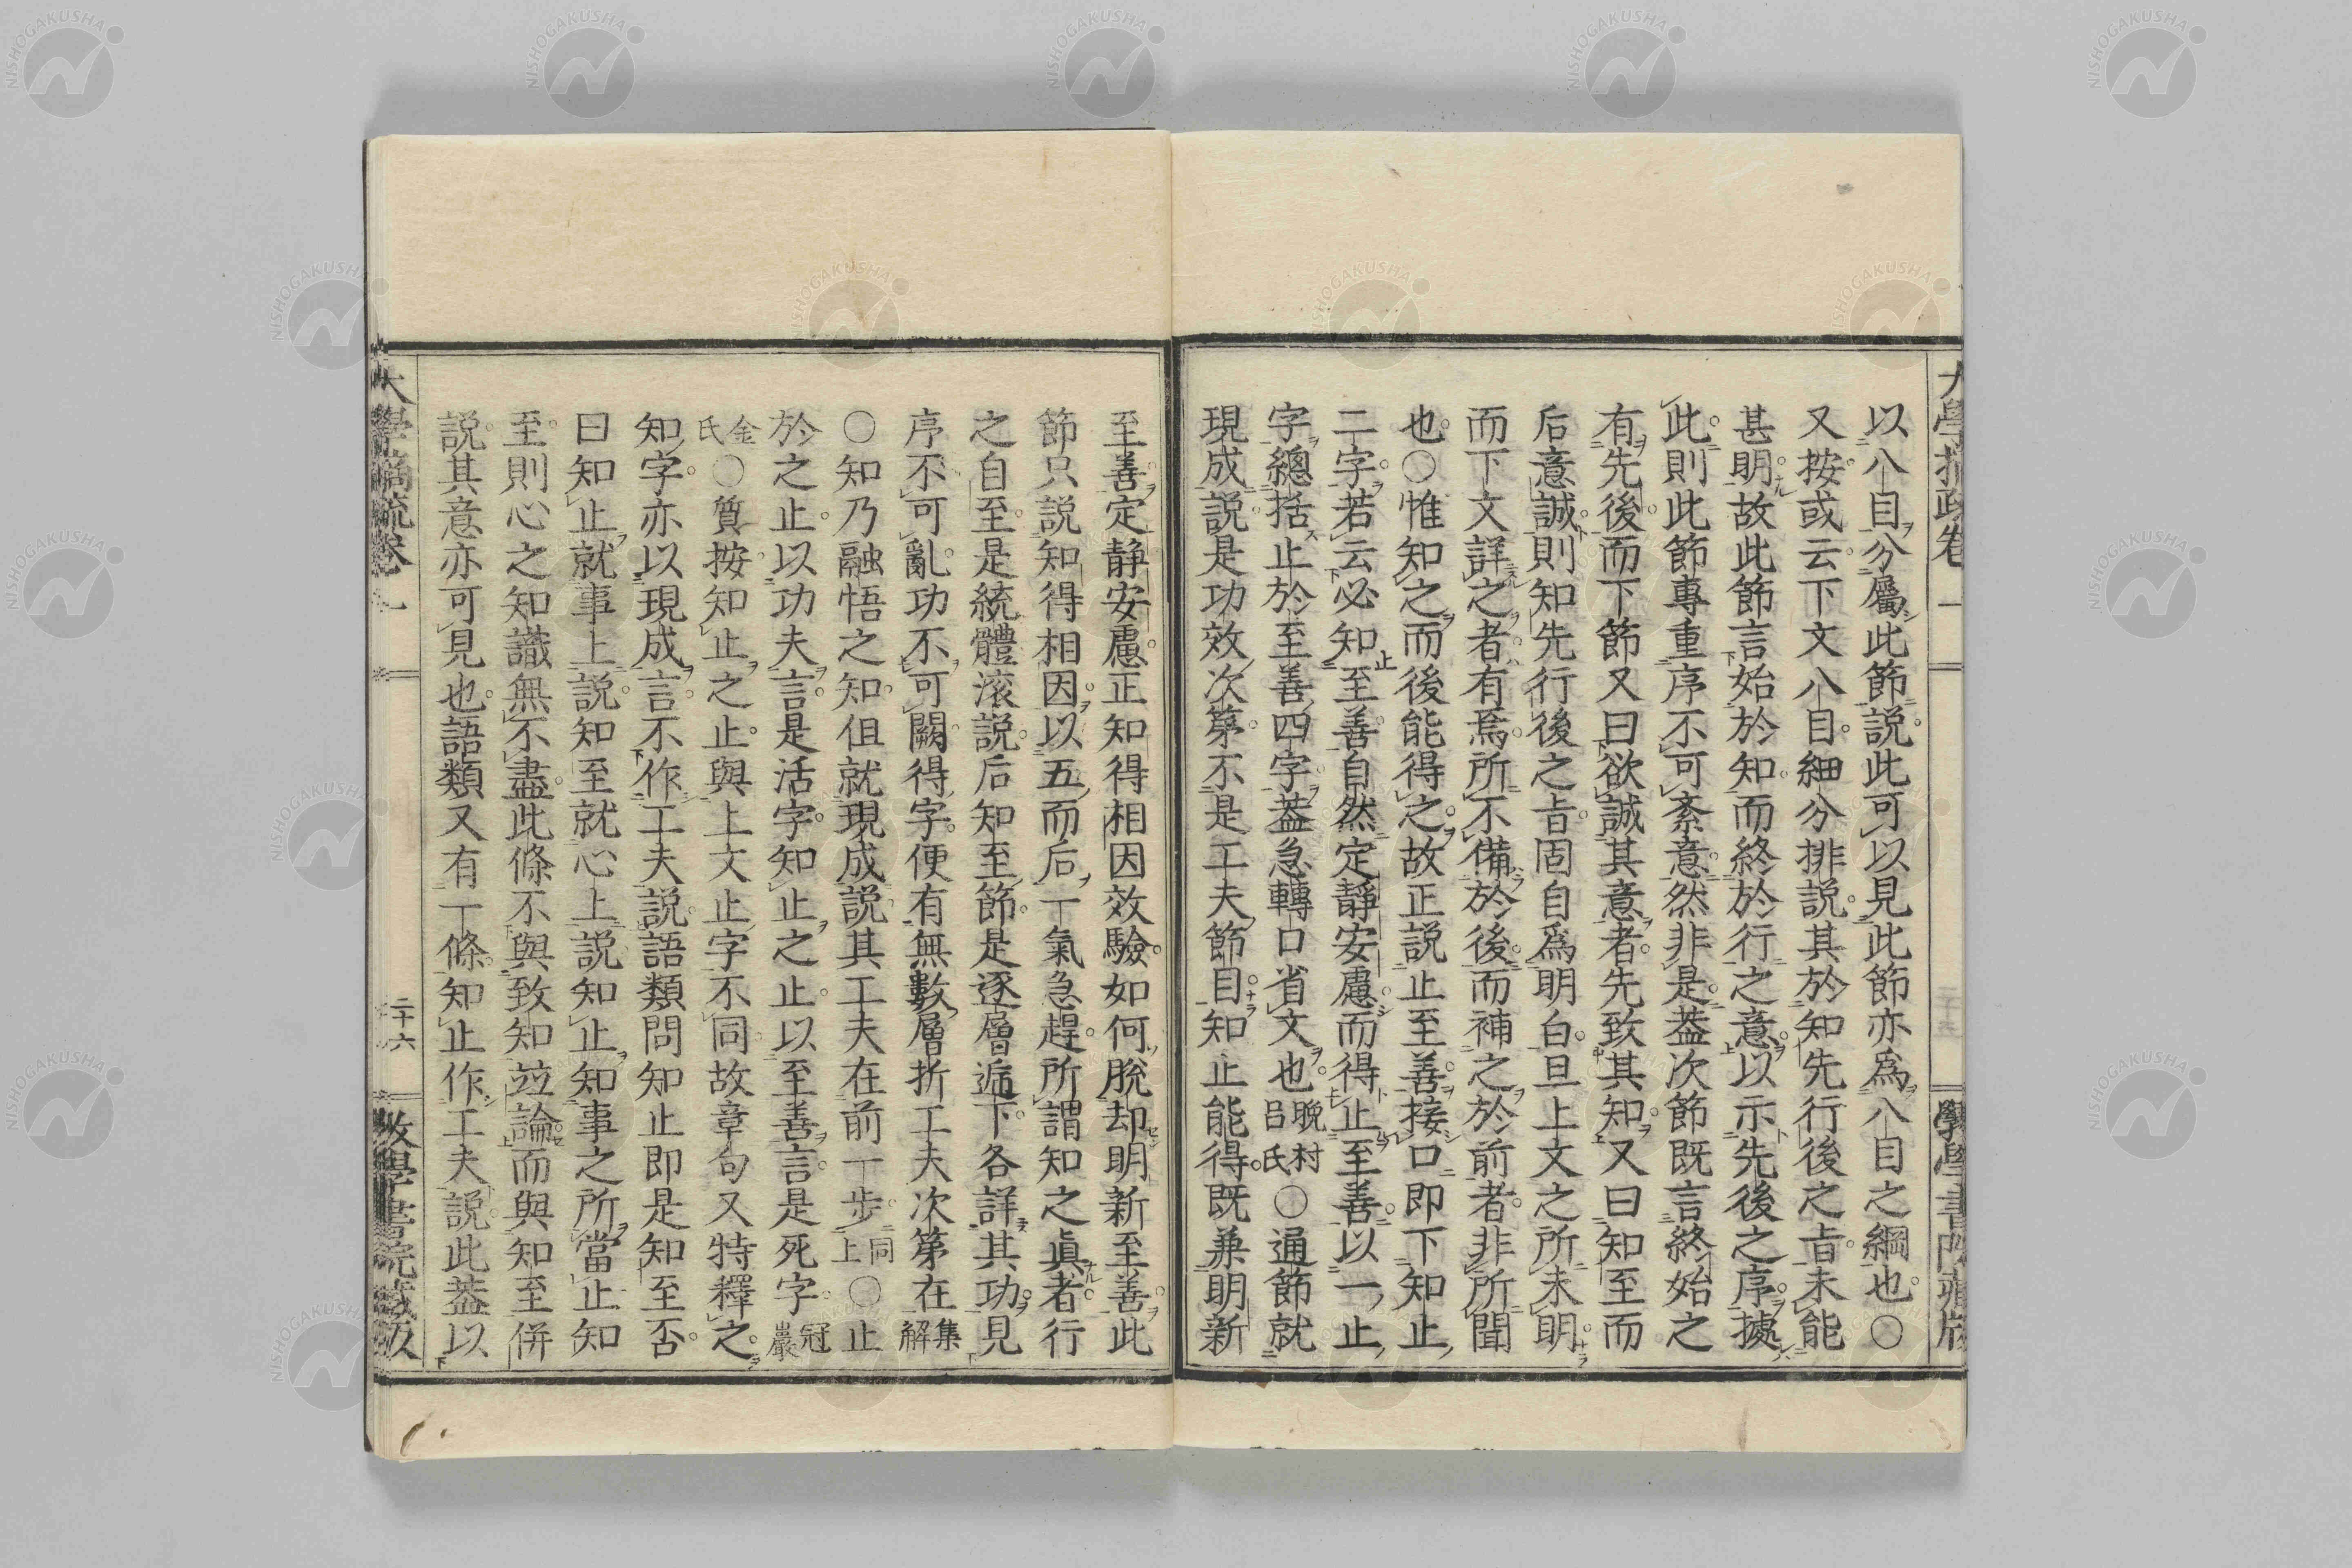 以八目分屬此節説此可以見此節亦爲八目之綱也○
又按或云下文八目細分排説其於知先行後之㫖未能
甚明故此節言始於知而終於行之意以示先後之序據
此則此節專重序不可紊意然非是葢次節既言終始之
有先後而下節又曰欲誠其意者先致其知又曰知至而
后意誠則知先行後之㫖固自爲明白且上文之所未明
而下文詳之者有焉所不備於後而補之於前者非所聞
也○惟知之而後能得之故正説止至善接口即下知止
二字若云必知止至善自然定靜安慮而得止至善以一止
字總括止於至善四字葢急轉口省文也晩村呂氏○通節就
現成説是功效次第不是工夫節目知止能得既兼明新
至善定靜安慮正知得相因效驗如何脫却明新至善此
節只説知得相因以五而后一氣急趕所謂知之眞者行
之自至是統體滾説后知至節是逐層遞下各詳其功見
序不可亂功不可闕得字便有無數層折工夫次第在集解
○知乃融悟之知但就現成説其工夫在前一步同上○止
於之止以功夫言是活字知止之止以至善言是死字冠巖
金氏○質按知止之止與上文止字不同故章句又特釋之
知字亦以現成言不作工夫説語類問知止即是知至否
曰知止就事上説知至就心上説知止知事之所當止知
至則心之知識無不盡此條不與致知竝論而與知至併
説其意亦可見也語類又有一條知止作工夫説此葢以
大學摘疏卷一
二十六
斅學書院藏版